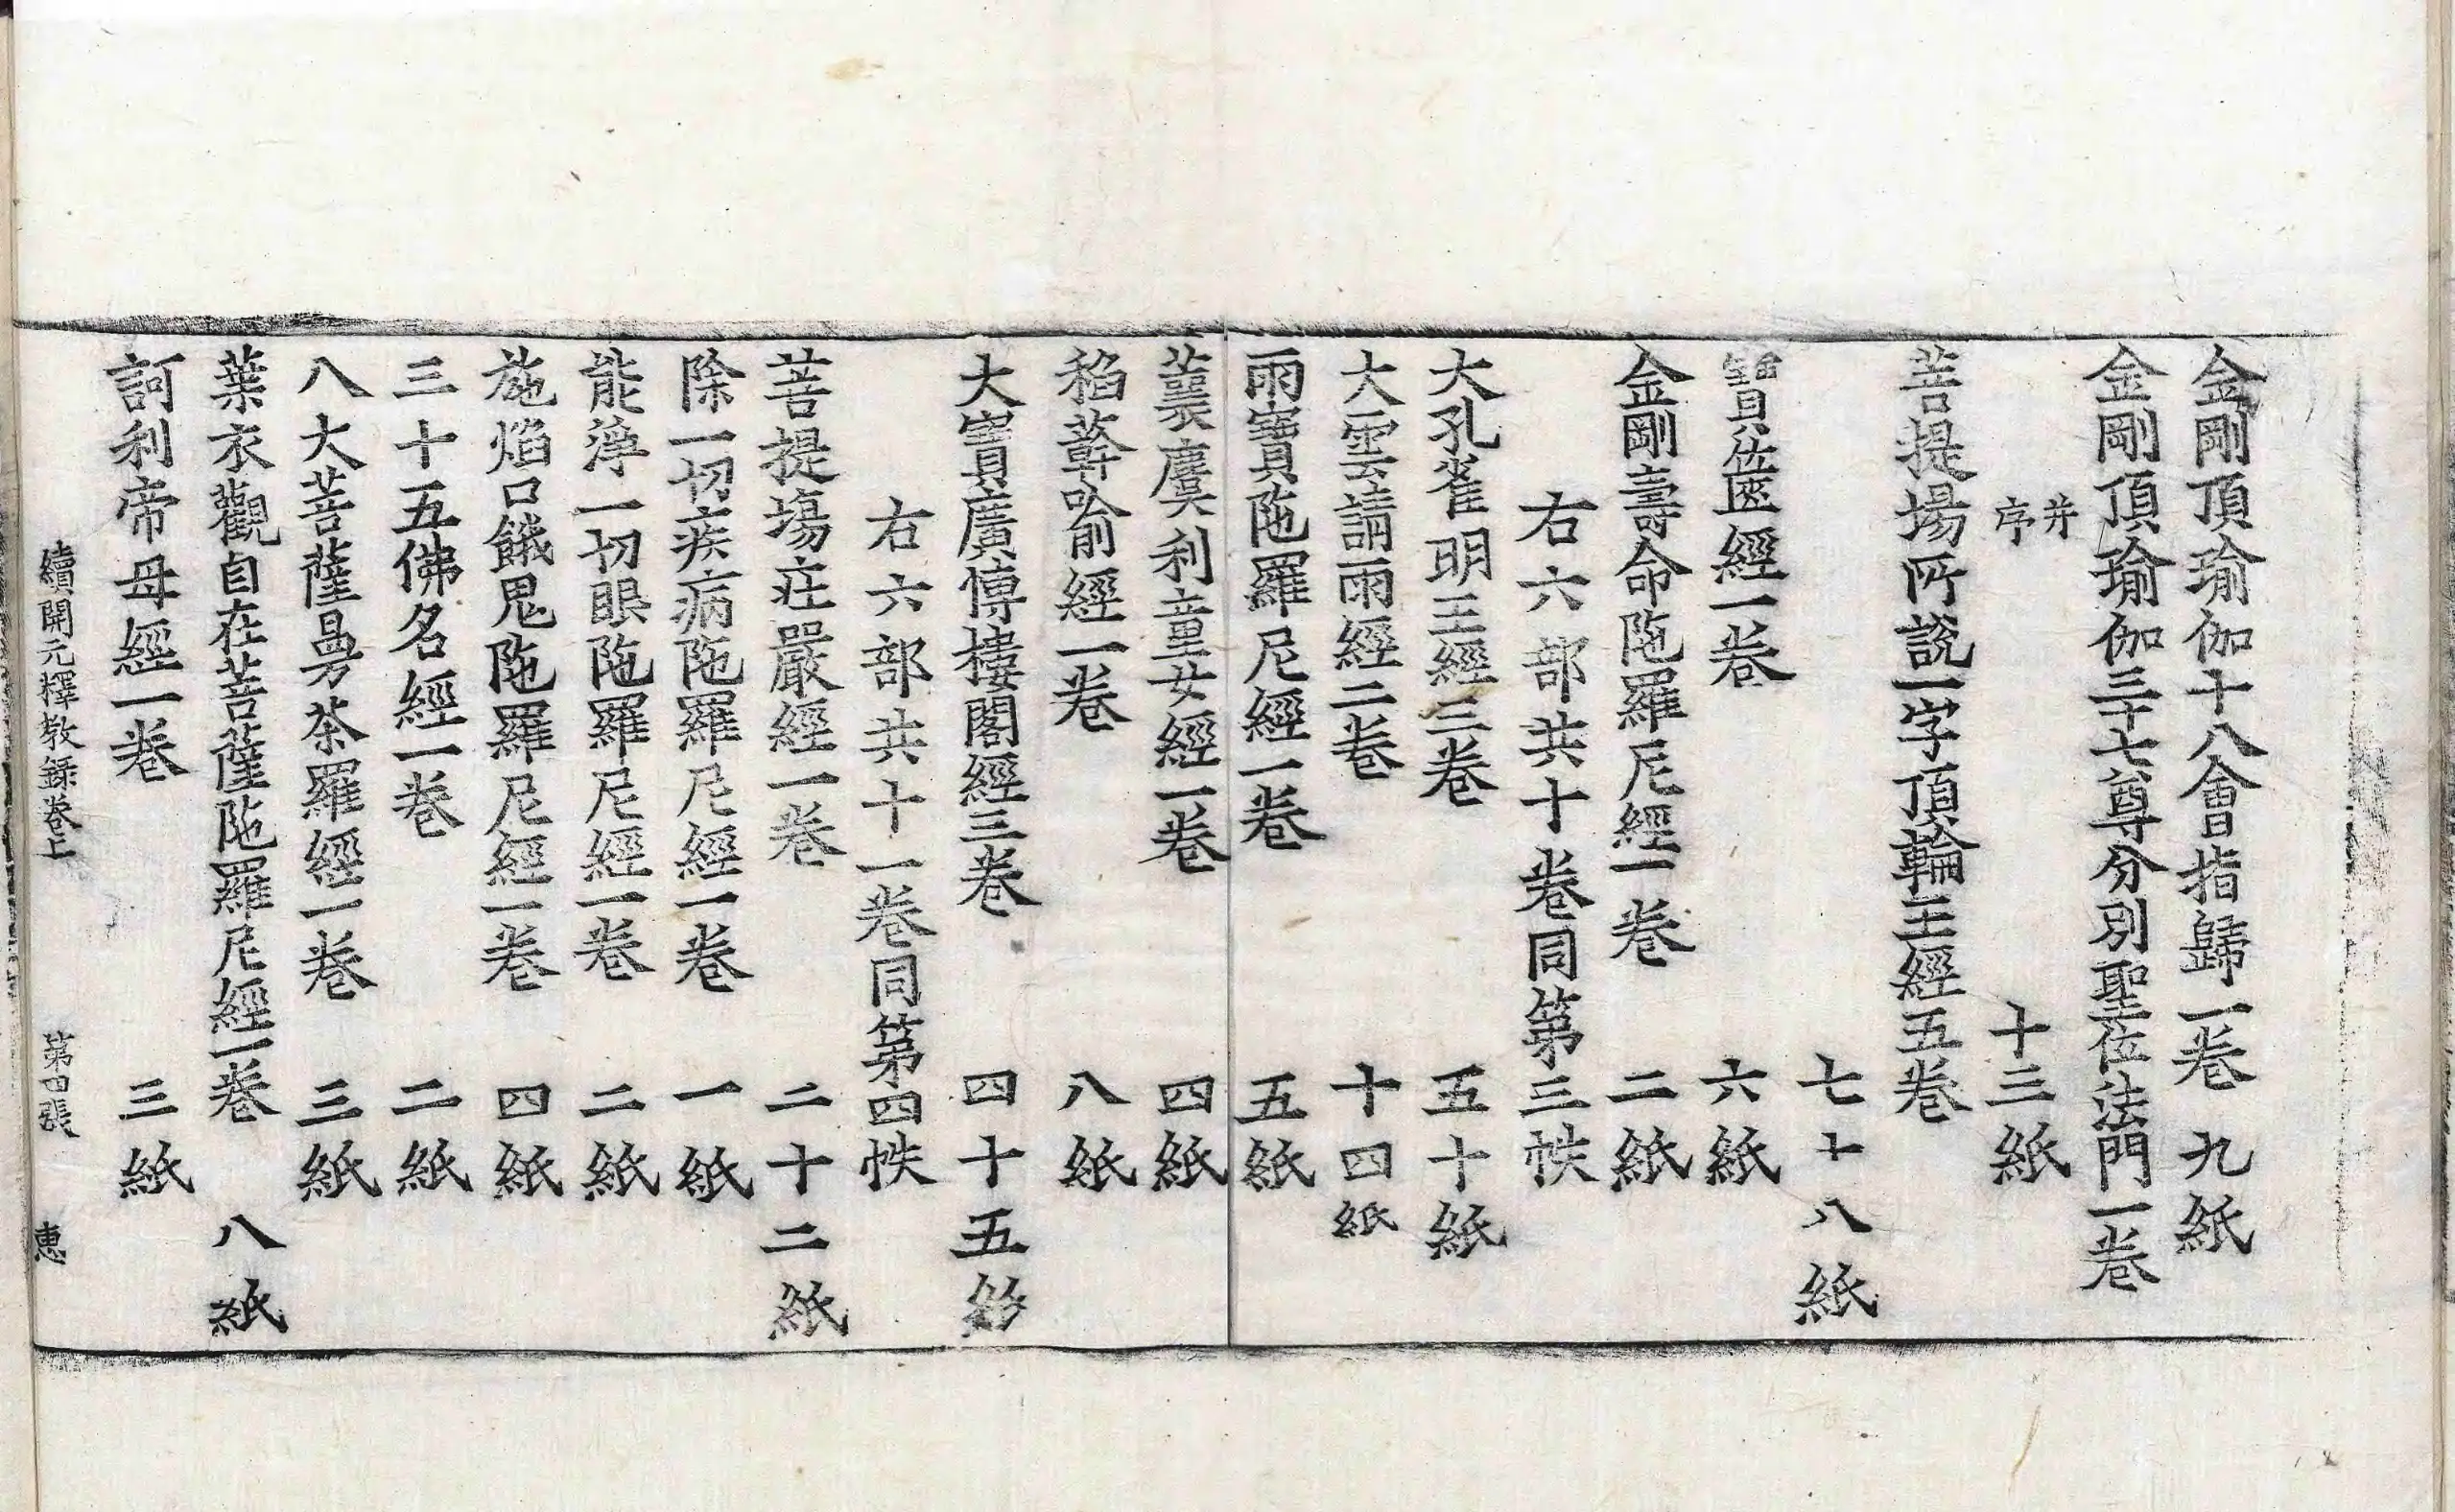 金剛頂瑜伽十八會指歸一卷 九紙
金剛頂瑜伽三十七尊分別聖位法門一卷
并序 十三紙
菩提場所說一字頂輪王經五卷
七十八紙
寶篋經一卷 六紙
金剛壽命陁羅尼經一卷 二紙
右六部共十卷同第三帙
大孔雀明王經三卷 五十紙
大雲請雨經二卷 十四紙
雨寶陁羅尼經一卷 五紙
蘘麌利童女經一卷 四紙
稻蕐喻經一卷 八紙
大寶廣博樓閣經三卷 四十五紙
右六部共十一卷同第四帙
菩提塲莊嚴經一卷 二十二紙
除一切疾病陁羅尼經一卷 一紙
能淨一切眼陁羅尼經一卷 二紙
施焰口餓鬼陁羅尼經一卷 四紙
三十五佛名經一卷 二紙
八大菩薩曼茶羅經一卷 三紙
葉衣觀自在菩薩陁羅尼經一卷 八紙
訶利帝母經一卷 三紙
續開元釋教錄卷上 第四張 惠